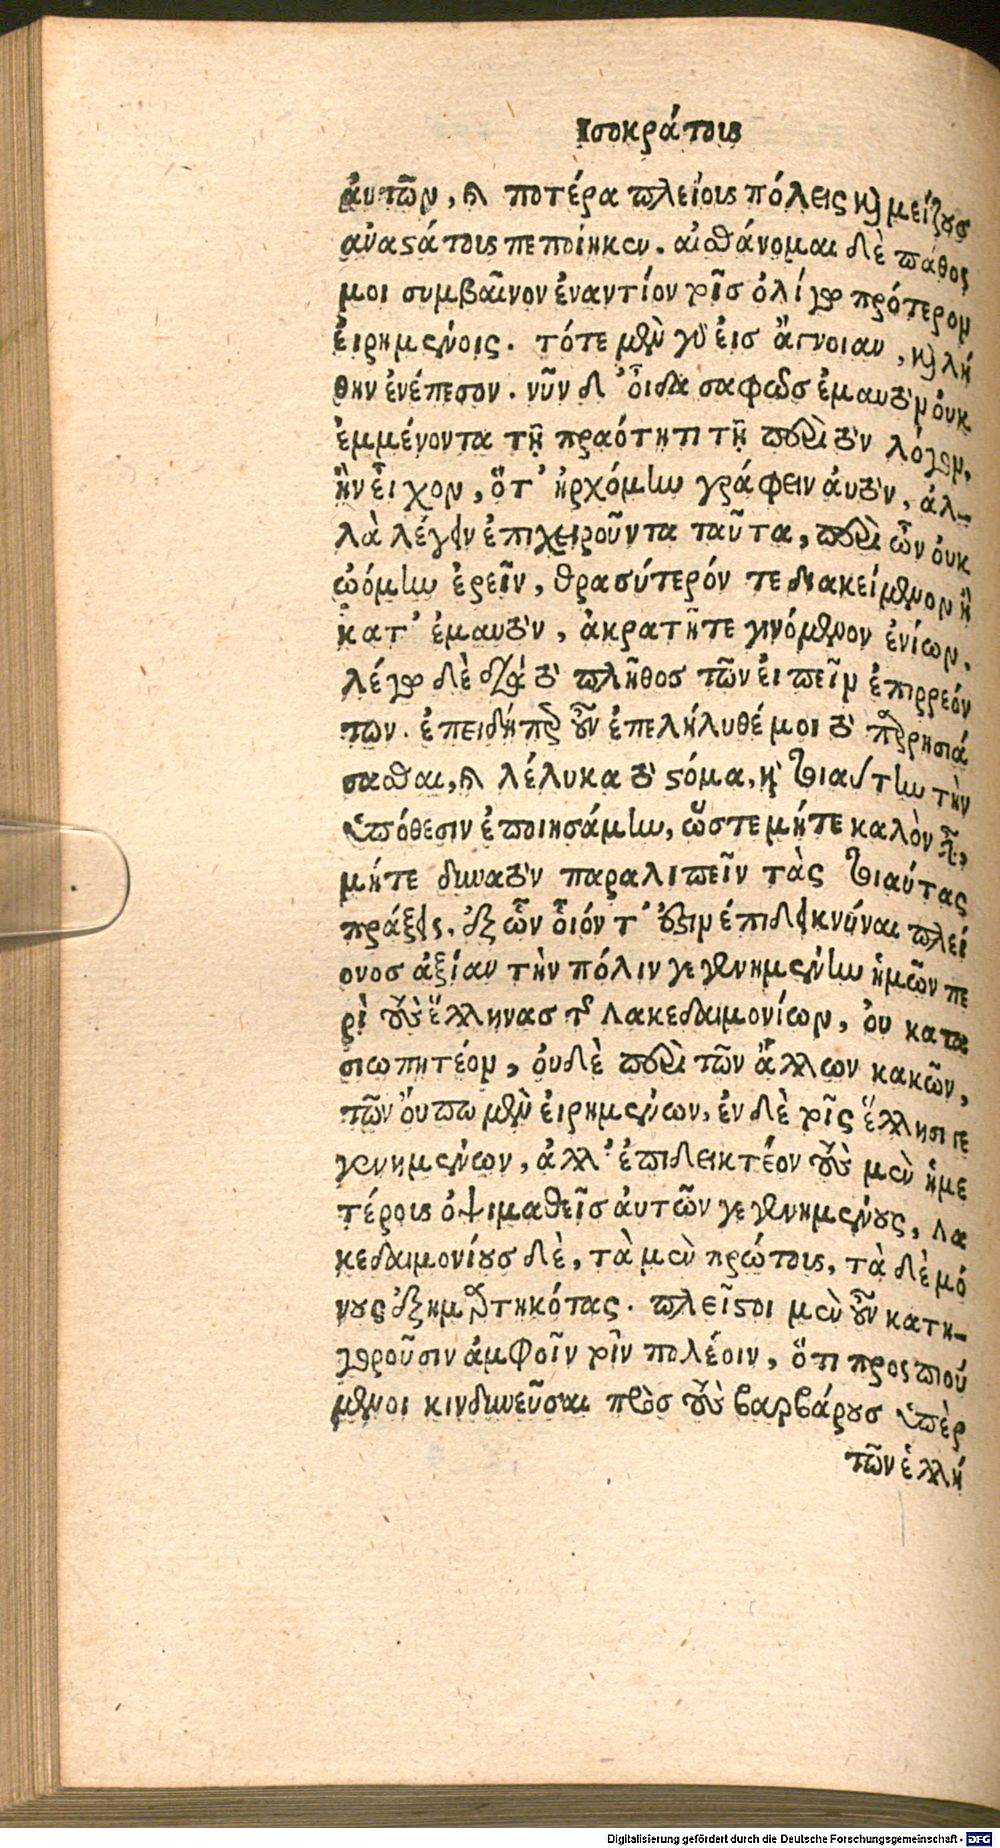 Ισοκράτους
ἀυτῶν, ἢ ποτέρα πλείους πόλεις καὶ μείζους
ἀναστάτους πεποίηκεν. αἰσθάνομαι δὲ πάθος
μοι συμβαῖνον ἐναντίον τοῖς ὀλίγῳ πρότερον
ἐιρημένοις. τότε μὲν γὰρ ἐις ἄγνοιαν, καὶ λή
θην ἐνέπεσον. νῦν δ' ὀῖδα σαφῶς ἐμαυτὸν ὀυκ
ἐμμένοντα τῇ πραότητι τῇ περὶ τὸν λόγον,
ἣν εἶχον, ὅτ' ἠρχόμην γράφειν ἀυτὸν, ἀλ-
λὰ λέγειν ἐπιχειροῦντα ταῦτα, περὶ ὧν ὀυκ
ᾠόμην ἐρεῖν, θρασύτερόν τε διακείμενον ἢ
κατ' ἐμαυτὸν, ἀκρατῆτε γινόμενον ἐνίων,
λέγω δὲ διὰ τὸ πλῆθος τῶν ἐιπεῖν ἐπιρρεόν
των. ἐπειδήπερ οὖν ἐπελήλυθέ μοι τὸ παρρησιά
σασθαι, ἢ λέλυκα τὸ στόμα, καὶ τοιαύτην τὴν
ὑπόθεσιν ἐποιησάμην, ὥστε μήτε καλὸν εἶναι,
μήτε δυνατὸν παραλιπεῖν τὰς τοιαύτας
πράξεις, ἐξ ὧν ὀῖόν τ' ἐστιν ἐπιδεικνύναι πλεί
ονος ἀξίαν τὴν πόλιν γεγενημένην ἡμῶν πε
ρὶ τοὺς ἕλληνας τῆς Λακεδαιμονίων, ὀυ κατα
σιωπητέον, ὀυδὲ περὶ τῶν ἄλλων κακῶν,
τῶν ὄυπω μὲν ἐιρημένων, ἐν δὲ τοῖς ἕλλησι γε
γενημένων, ἀλλ' ἐπιδεικτέον τοὺς μὲν ἡμε
τέρους ὀψιμαθεῖς ἀυτῶν γεγενημένους, Λα
κεδαιμονίους δὲ, τὰ μὲν πρώτους, τὰ δὲ μό
νους ἐξημαρτηκότας. πλεῖστοι μὲν οὖν κατη-
γοροῦσιν ἀμφοῖν τοῖν πολέοιν, ὅτι προσποιού
μενοι κινδυνεῦσαι πρὸς τοὺς βαρβάρους ὑπὲρ
τῶν ἑλλή
Digitalisierung gefördert durch die Deutsche Forschungsgemeinschaft - DFG